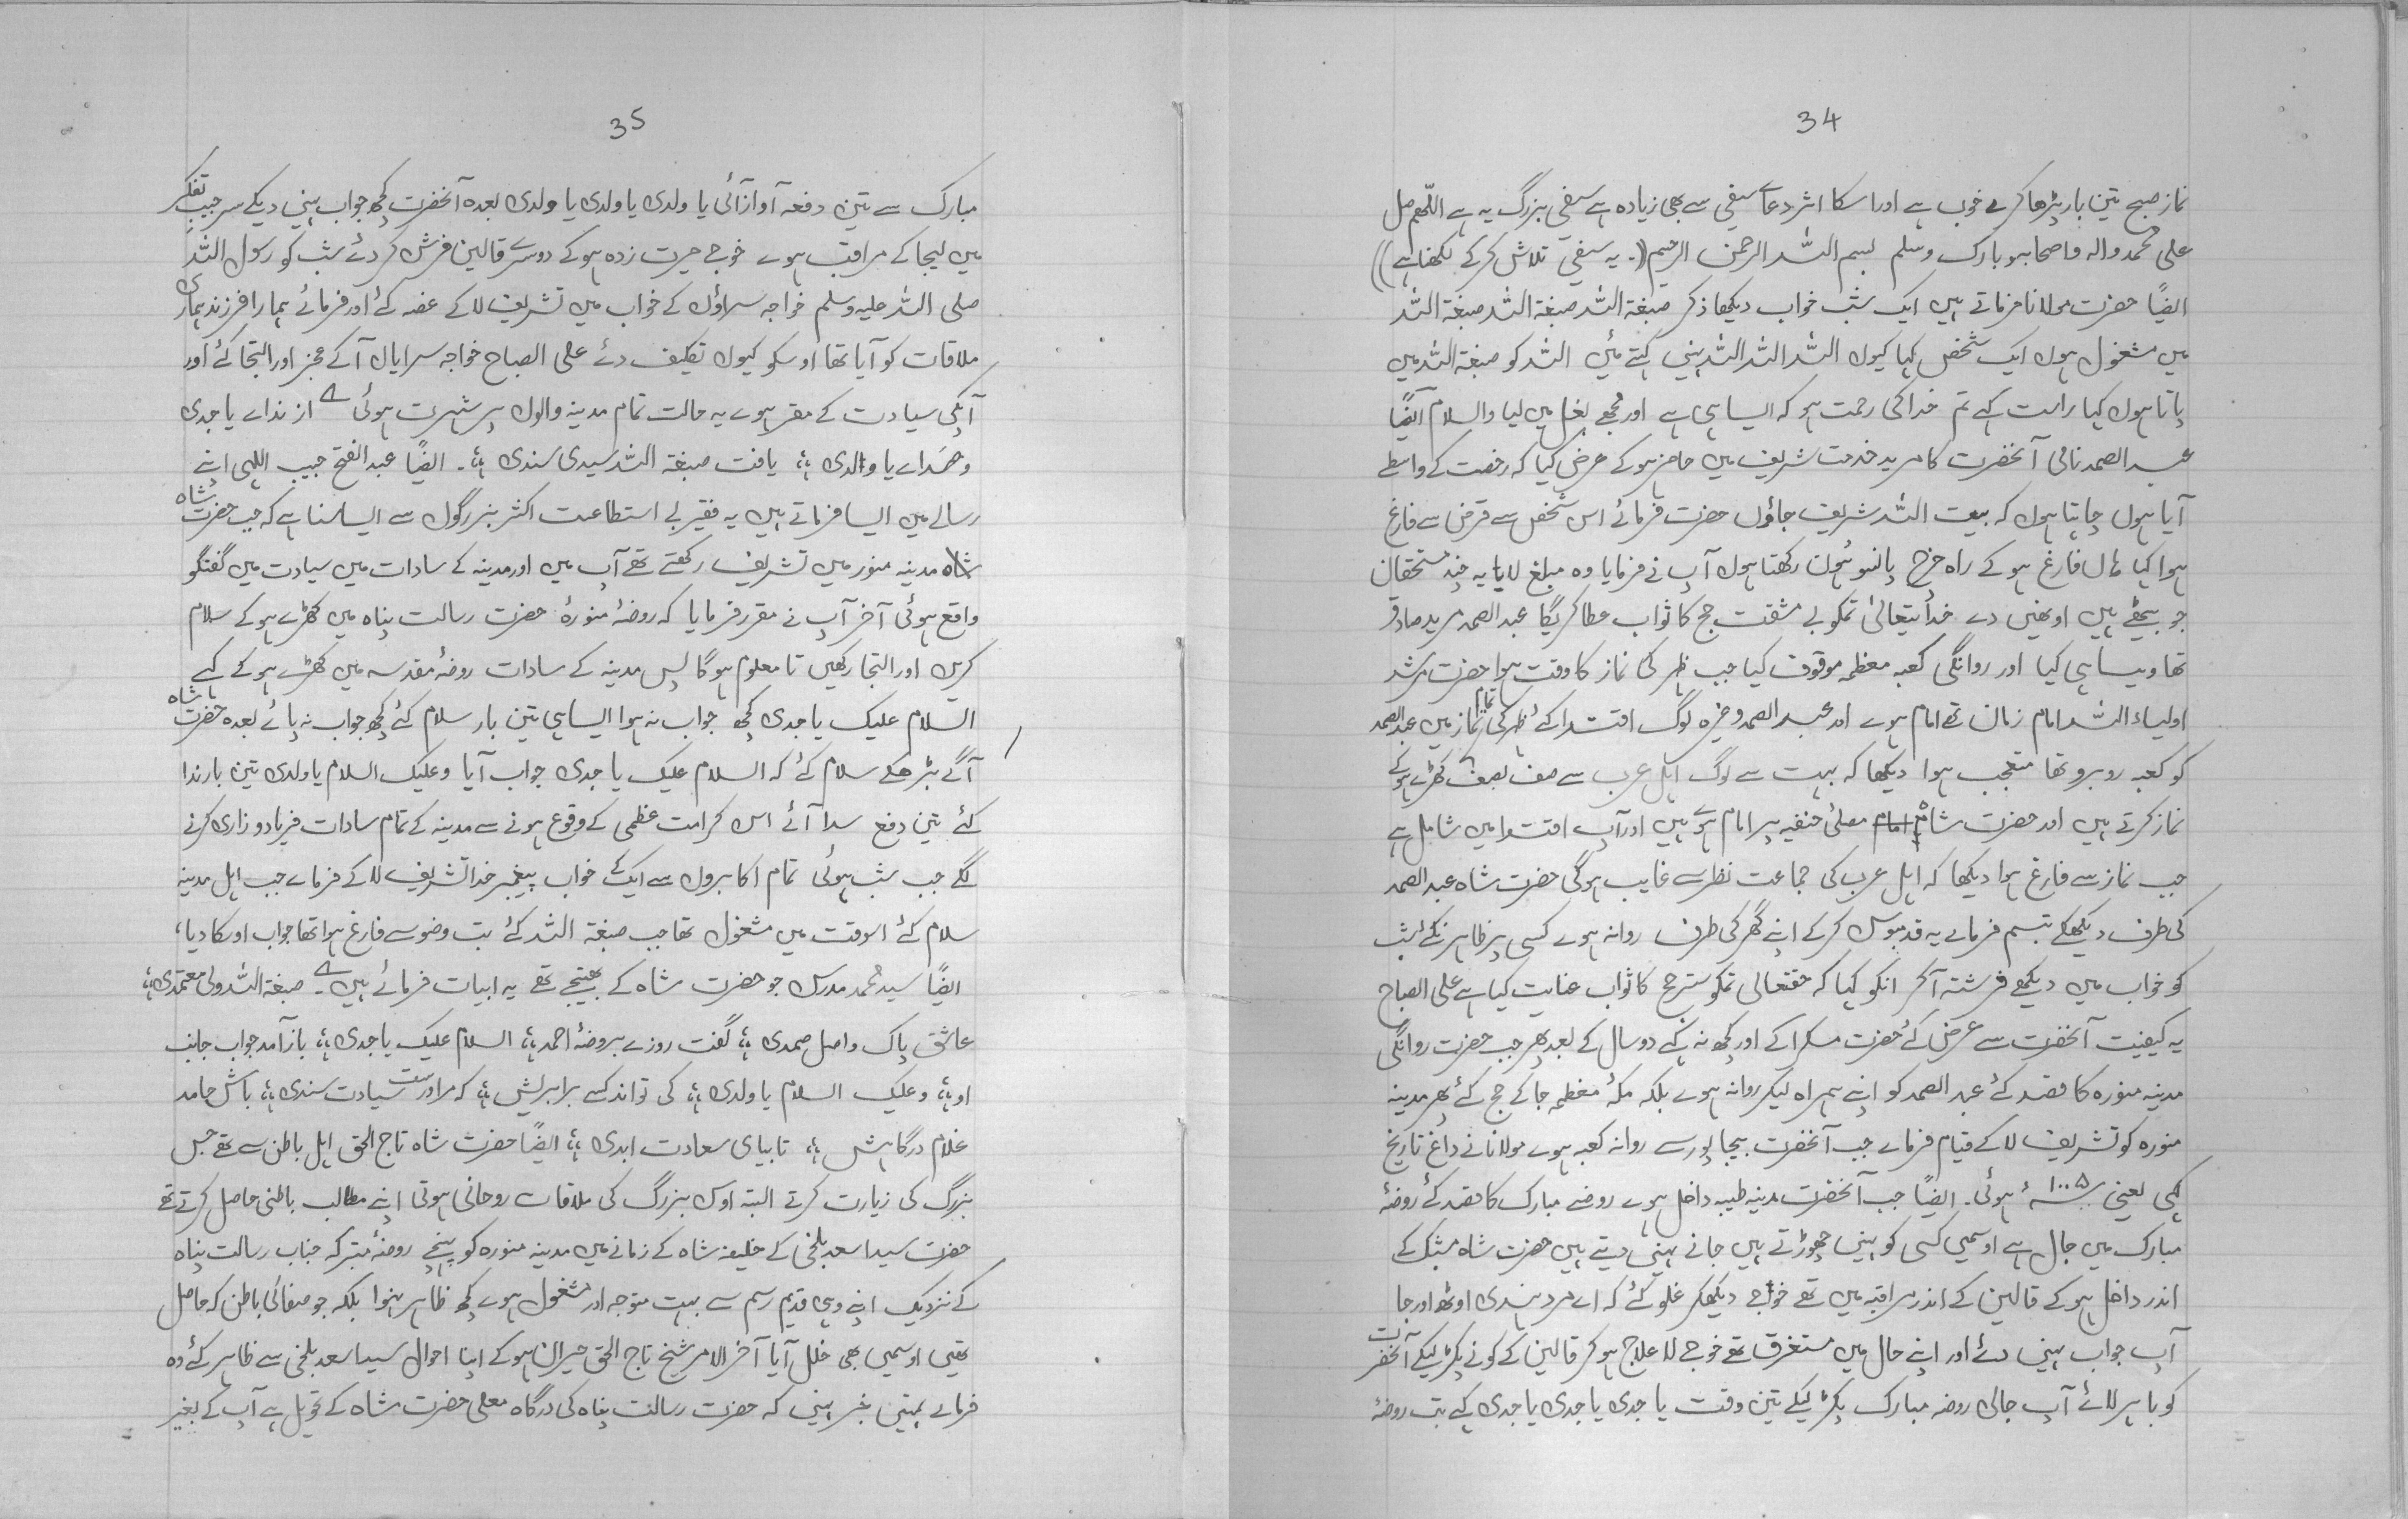 34
نماز صبح تین بار پڑھا کرے خوب ہے اور اسکا اثر دعاے سیفی سے بھی زیادہ ہے سیفی بزرگ یہ ہے اللّٰھم صل
علی محمد والہ واصحابہ وبارک وسلم بسم اللہ الرحمن الرحیم (۔ یہ سیفی تلاش کر کے لکھنا ہے))
ایضًا حضرت مولانا فرماتے ہیں ایک شب خواب دیکھا ذکر صبغۃ اللہ صبغۃ اللہ صبغۃ اللہ
میں مشغول ہوں ایک شخص کہا کیوں اللہ اللہ اللہ نہیں کہتے میں اللہ کو صبغۃ اللہ میں
پاتا ہوں کہا راست کہے تم خدا کی رحمت ہو کہ ایسا ہی ہے اور مجھے بغل میں لیا والسلام ایضًا
عبد الصمد نامی آنحضرت کا مرید خدمت شریف میں حاضر ہو کے عرض کیا کہ رخصت کے واسطے
آیا ہوں چاہتا ہوں کہ بیت اللہ شریف جاؤں حضرت فرمائے اس شخص سے قرض سے فارغ
ہوا کہا ہاں فارغ ہو کے راہ خرچ پانسو ہون رکھتا ہوں آپ نے فرمایا وہ مبلغ لایا یہ چند مستحقان
جو بیٹھے ہیں اونھیں دے خدایتعالیٰ تمکو بے مشقت حج کا ثواب عطا کریگا عبد الصمد مرید صادق
تھا ویسا ہی کیا اور روانگی کعبہ معظمہ موقوف کیا جب ظہر کی نماز کا وقت ہوا حضرت مرشد
اولیاء اللہ امام زمان تھے امام ہوے اور عبد الصمد وغیرہ لوگ اقتدا کئے ظہر کی تمام نماز میں عبد الصمد
کو کعبہ روبرو تھا متعجب ہوا دیکھا کہ بہت سے لوگ اہل عرب سے صف بصف کھڑے ہو کے
نماز کرتے ہیں اور حضرت شاہ امام مصلیٰ حنفیہ پر امام ہوے ہیں اور آپ اقتدا میں شامل ہے
جب نماز سے فارغ ہوا دیکھا کہ اہل عرب کی جماعت نظر سے غایب ہوگی حضرت شاہ عبد الصمد
کی طرف دیکھکے تبسم فرمائے یہ قدمبوس کر کے اپنے گھر کی طرف روانہ ہوے کسی پر ظاہر نکئے شب
کو خواب میں دیکھے فرشتہ آکر انکو کہا کہ حقتعالی تمکو ستر حج کا ثواب عنایت کیا ہے علی الصباح
یہ کیفیت آنحضرت سے عرض کئے حضرت مسکرا کے اور کچھ نہ کہے دو سال کے بعد پھر جب حضرت روانگی
مدینہ منورہ کا قصد کئے عبد الصمد کو اپنے ہمراہ لیکر روانہ ہوے بلکہ مکۂ معظمہ جا کے حج کئے پھر مدینہ
منورہ کو تشریف لا کے قیام فرمائے جب آنحضرت بیجاپور سے روانہ کعبہ ہوے مولانا نے داغ تاریخ
لکھی یعنی ۱۰۰۵ سنہ ہوئی۔ ایضًا جب آنحضرت مدینہ طیبہ داخل ہوے روضے مبارک کا قصد کئے روضۂ
مبارک میں جال ہے اوسمیں کسی کو نہیں چھوڑتے ہیں جانے نہیں دیتے ہیں حضرت شاہ مشبک کے
اندر داخل ہو کے قالین کے اندر مراقبہ میں تھے خواجے دیکھکر غلو کئے کہ اے مرد ہندی اوٹھ اور جا
آپ جواب نہیں دئے اور اپنے حال میں مستغرق تھے خوجے لاعلاج ہو کر قالین کے کونے پکڑ لیکے آنحضرت
کو باہر لائے آپ جالی روضہ مبارک پکڑ لیکے تین وقت یا جدی یا جدی یا جدی کہے تب روضۂ
35
مبارک سے تین دفعہ آواز آئی یا ولدی یا ولدی یا ولدی بعدہ آنحضرت کچھ جواب نہیں دیکے سر جیب تفکر
میں لیجا کے مراقب ہوے خوجے حیرت زدہ ہو کے دوسرے قالین فرش کر دئے شب کو رسول اللہ
صلی اللہ علیہ وسلم خواجہ سراؤں کے خواب میں تشریف لا کے غصہ کئے اور فرمائے ہمارا فرزند ہماری
ملاقات کو آیا تھا اوسکو کیوں تکلیف دئے علی الصباح خواجہ سرایاں آ کے عجز اور التجا کئے اور
آپکی سیادت کے مقر ہوے یہ حالت تمام مدینہ والوں پر شہرت ہوئی ے از نداے یا جدی
وصداے یا والدی ؛؛ یافت صبغۃ اللہ سیدی سندی ؛؛۔ ایضًا عبد الفتح حبیب اللہی اپنے
رسالے میں ایسا فرماتے ہیں یہ فقیر بے استطاعت اکثر بزرگوں سے ایسا سنا ہے کہ جب حضرت شاہ
شاہ مدینہ منور میں تشریف رکھتے تھے آپ میں اور مدینہ کے سادات میں سیادت میں گفتگو
واقع ہوئی آخر آپ نے مقرر فرمایا کہ روضۂ منورۂ حضرت رسالت پناہ میں کھڑے ہو کے سلام
کریں اور التجا رکھیں تا معلوم ہوگا پس مدینہ کے سادات روضۂ مقدسہ میں کھڑے ہو کے کہے
السلام علیک یا جدی کچھ جواب نہ ہوا ایسا ہی تین بار سلام کئے کچھ جواب نہ پائے بعدہ حضرت شاہ
آگے بڑھکے سلام کئے کہ السلام علیک یا جدی جواب آیا وعلیک السلام یا ولدی تین بار ندا
کئے تین دفع سدا آئے اس کرامت عظمی کے وقوع ہونے سے مدینہ کے تمام سادات فریاد و زاری کرنے
لگے جب شب ہوئی تمام اکابروں سے ایک کے خواب پیغمبر خدا تشریف لا کے فرمائے جب اہل مدینہ
سلام کئے اسوقت میں مشغول تھا جب صبغۃ اللہ کئے تب وضو سے فارغ ہوا تھا جواب اوسکا دیا،
ایضًا سید محمد مدرس جو حضرت شاہ کے بھتیجے تھے یہ ابیات فرمائے ہیں ے۔ صبغۃ اللہ ولی معتمدی ؛؛
عاشق پاک واصل صمدی ؛؛ گفت روزے بروضۂ احمد ؛؛ السلام علیک یا جدی ؛؛ باز آمد جواب جانب
او ؛؛ وعلیک السلام یا ولدی ؛؛ کی تواند کسے برابریش ؛؛ کہ مر اوراست سیادت سندی ؛؛ باش حامد
غلام درگاہش ؛؛ تا بیابی سعادت ابدی ؛؛ ایضًا حضرت شاہ تاج الحق اہل باطن سے تھے جس
بزرگ کی زیارت کرتے البتہ اوس بزرگ کی ملاقات روحانی ہوتی اپنے مطالب باطنی حاصل کرتے تھے
حضرت سید اسعد بلخی کے خلیفہ شاہ کے زمانے میں مدینہ منورہ کو پہنچے روضۂ متبرکہ جناب رسالت پناہ
کے نزدیک اپنے وہی قدیم رسم سے بہت متوجہ اور مشغول ہوے کچھ ظاہر نہوا بلکہ جو صفائی باطن کہ حاصل
تھی اوسمیں بھی خلل آیا آخر الامر شیخ تاج الحق حیران ہو کے اپنا احوال سید اسعد بلخی سے ظاہر کئے وہ
فرمائے تمہیں خبر نہیں کہ حضرت رسالت پناہ کی درگاہ معلی حضرت شاہ کے تحویل ہے آپ کے بغیر